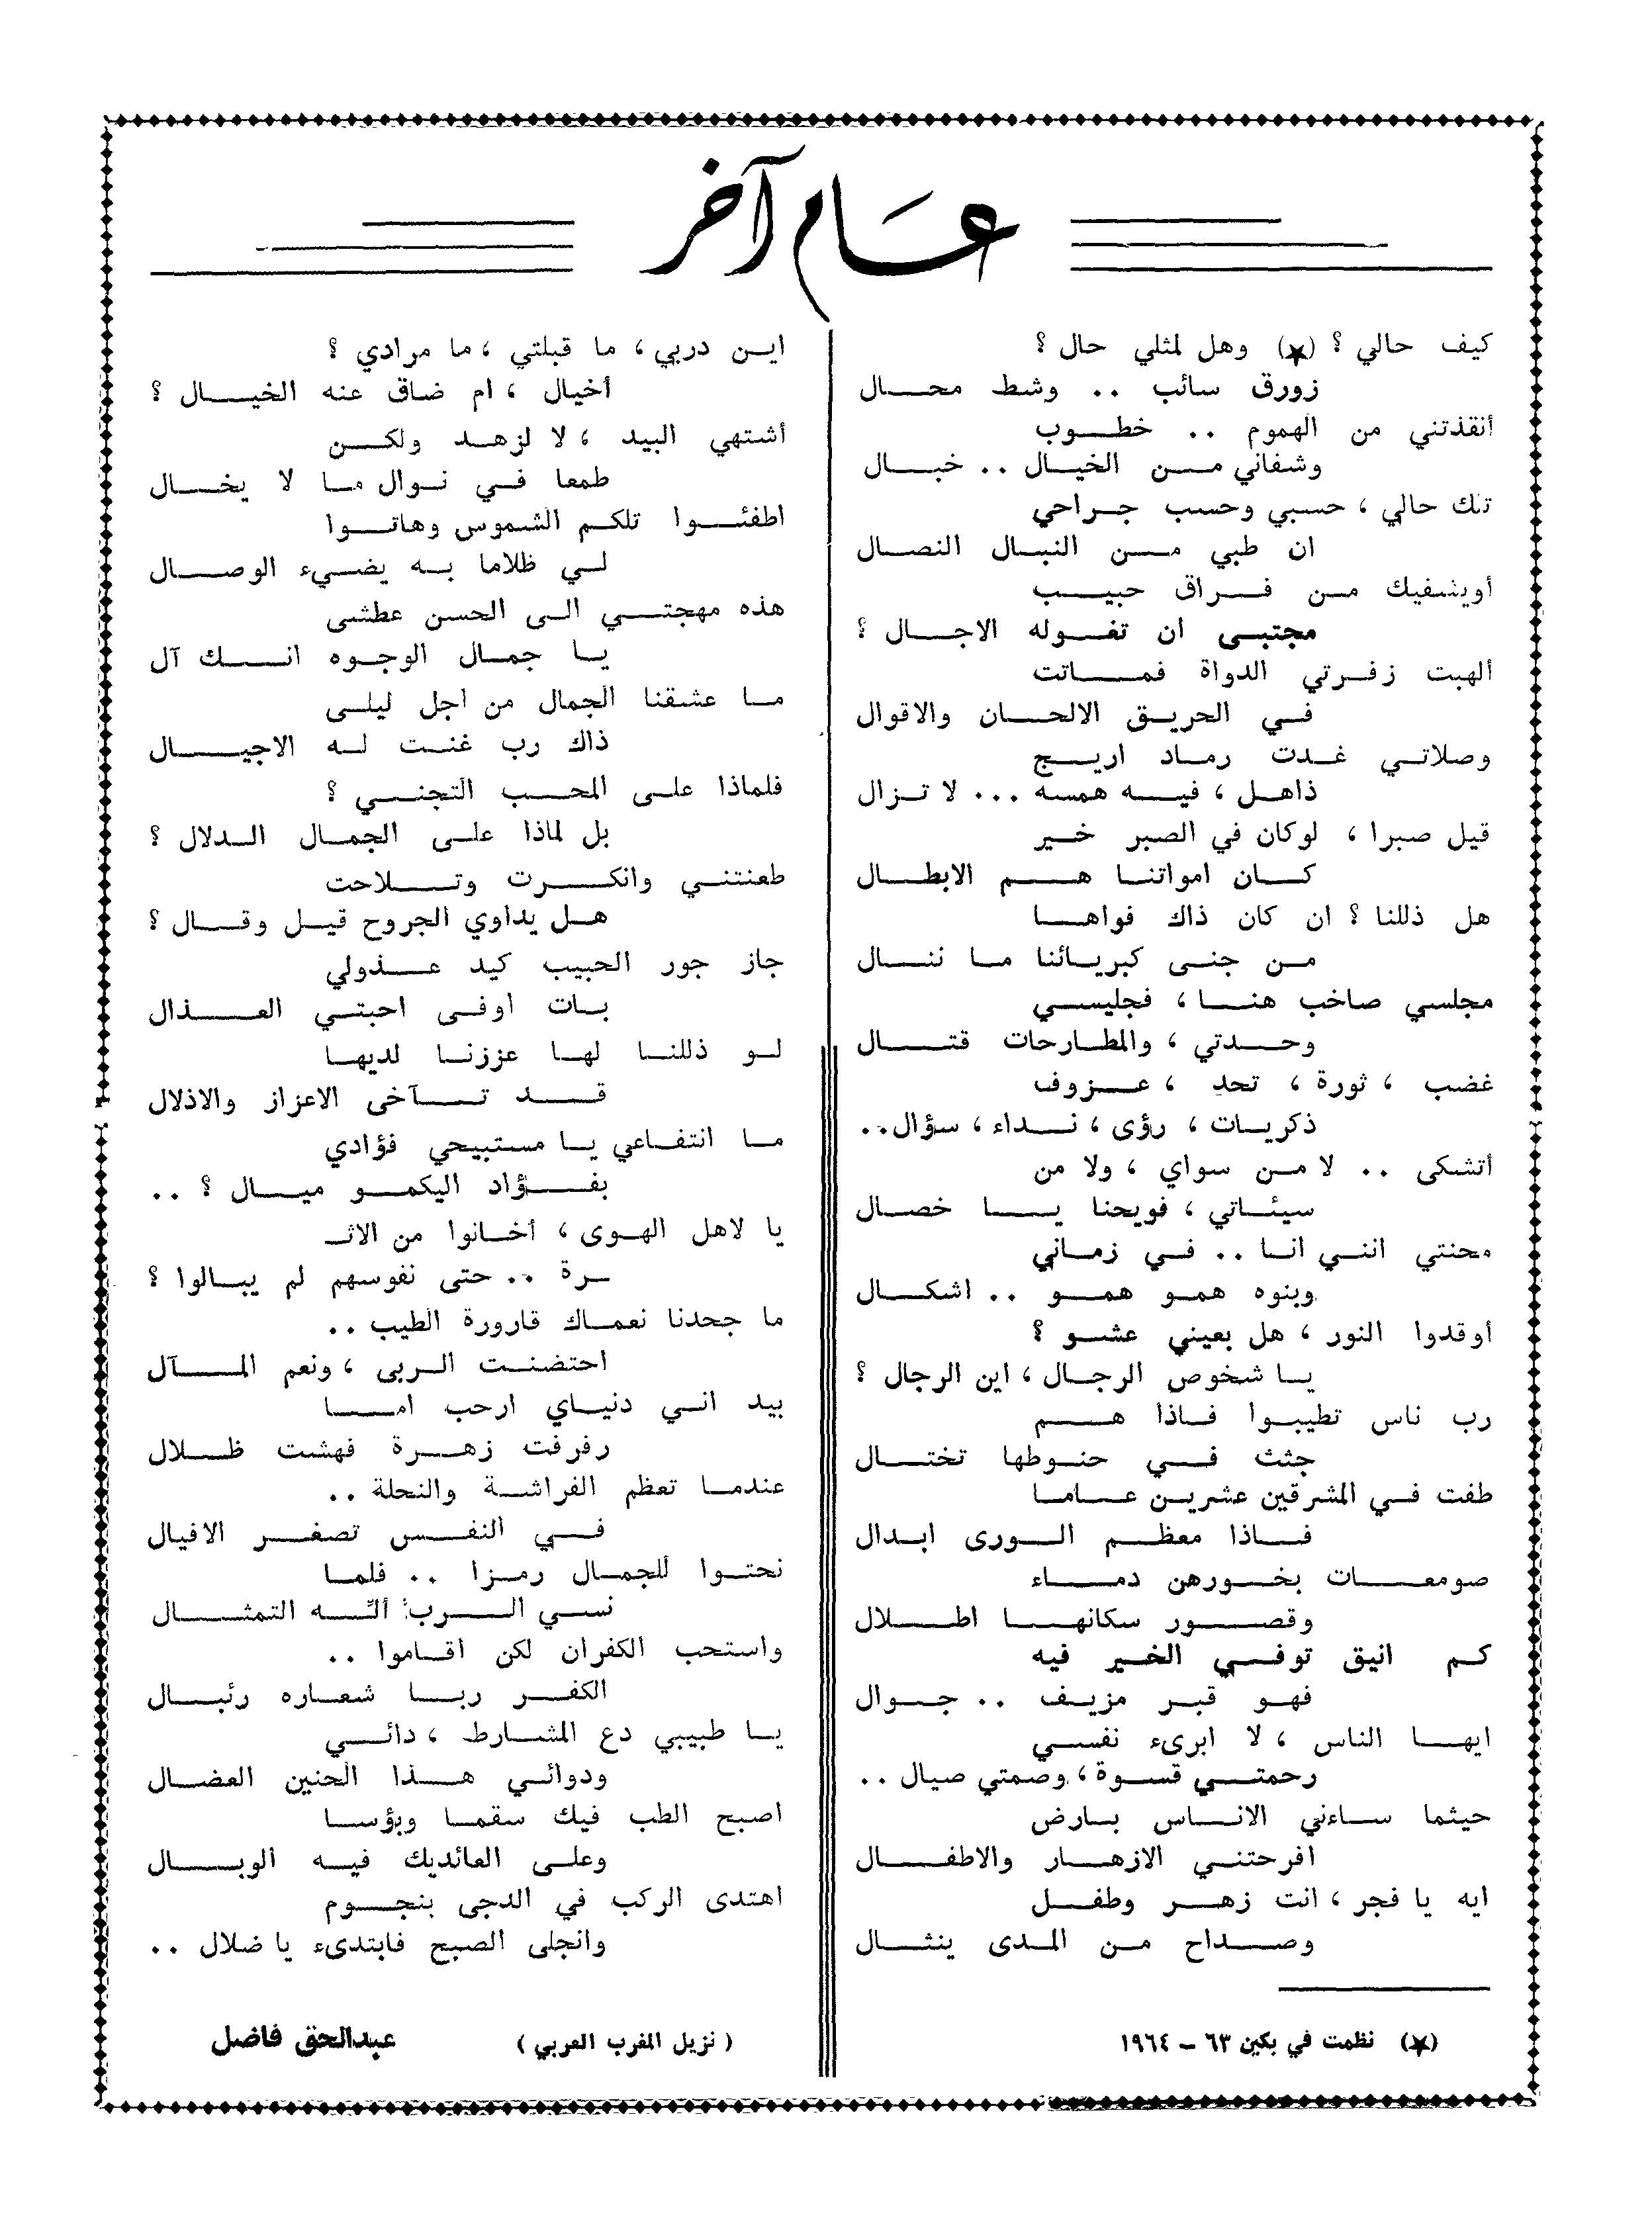 عام آخر
كيف حالي ؟ (★) وهل لمثلي حال ؟
زورق سائب .. وشط محال
أنقذتني من الهموم .. خطوب
وشفاني من الخيال .. خبال
تلك حالي ، حسبي وحسب جراحي
ان طبي من النبال النصال
أويشفيك من فراق حبيب
مجتبى ان تغوله الاجال ؟
ألهبت زفرتي الدواة فماتت
في الحريق الالحان والاقوال
وصلاتي غدت رماد اريج
ذاهل ، فيه همسه ... لا تزال
قيل صبرا ، لوكان في الصبر خير
كان امواتنا هم الابطال
هل ذللنا ؟ ان كان ذاك فواها
من جنى كبريائنا ما ننال
مجلسي صاخب هنا ، فجليسي
وحدتي ، والمطارحات قتال
غضب ، ثورة ، تحد ، عزوف
ذكريات ، رؤى ، نداء ، سؤال..
أتشكى .. لا من سواي ، ولا من
سيئاتي ، فويحنا يا خصال
محنتي انني انا .. في زماني
وبنوه همو همو .. اشكال
أوقدوا النور ، هل بعيني عشو ؟
يا شخوص الرجال ، اين الرجال ؟
رب ناس تطيبوا فاذا هم
جثث في حنوطها تختال
طفت في المشرقين عشرين عاما
فاذا معظم الورى ابدال
صومعات بخورهن دماء
وقصور سكانها اطلال
كم انيق توفي الخير فيه
فهو قبر مزيف .. جوال
ايها الناس ، لا ابرىء نفسي
رحمتي قسوة ، وصمتي صيال ..
حيثما ساءني الاناس بارض
افرحتني الازهار والاطفال
ايه يا فجر ، انت زهر وطفل
وصداح من المدى ينثال
(★) نظمت في بكين ٦٣ - ١٩٦٤
اين دربي ، ما قبلتي ، ما مرادي ؟
أخيال ، ام ضاق عنه الخيال ؟
أشتهي البيد ، لا لزهد ولكن
طمعا في نوال ما لا يخال
اطفئوا تلكم الشموس وهاتوا
لي ظلاما به يضيء الوصال
هذه مهجتي الى الحسن عطشى
يا جمال الوجوه انك آل
ما عشقنا الجمال من اجل ليلى
ذاك رب غنت له الاجيال
فلماذا على المحب التجني ؟
بل لماذا على الجمال الدلال ؟
طعنتني وانكرت وتلاحت
هل يداوي الجروح قيل وقال ؟
جاز جور الحبيب كيد عذولي
بات اوفى احبتي العذال
لو ذللنا لها عززنا لديها
قد تآخى الاعزاز والاذلال
ما انتفاعي يا مستبيحي فؤادي
بفؤاد اليكمو ميال ؟ ..
يا لاهل الهوى ، أخانوا من الاثـ
ـرة .. حتى نفوسهم لم يبالوا ؟
ما جحدنا نعماك قارورة الطيب ..
احتضنت الربى ، ونعم المآل
بيد اني دنياي ارحب اما
رفرفت زهرة فهشت ظلال
عندما تعظم الفراشة والنحلة ..
في النفس تصغر الافيال
نحتوا للجمال رمزا .. فلما
نسي الرب ألّه التمثال
واستحب الكفران لكن اقاموا ..
الكفر ربا شعاره رئبال
يا طبيبي دع المشارط ، دائي
ودوائي هذا الحنين العضال
اصبح الطب فيك سقما وبؤسا
وعلى العائديك فيه الوبال
اهتدى الركب في الدجى بنجوم
وانجلى الصبح فابتدىء يا ضلال ..
( نزيل المغرب العربي )
عبدالحق فاضل